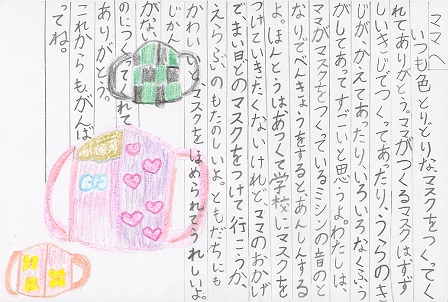 ママへ
いつも色とりどりなマスクをつくってく
れてありがとう。ママがつくるマスクはすず
しいきじでつくってあったり、うらのき
じがかえてあったり、いろいろなくふう
がしてあってすごいと思うよ。わたしは、
ママがマスクをつくっているミシンの音のと
なりでべんきょうをするとあんしんする
よ。ほんとうは、あつくて学校にマスクを
つけていきたくないけれど、ママのおかげ
で、まい日どのマスクをつけて行こうか、
えらぶ、のもたのしいよ。ともだちにも
かわいいとマスクをほめられてうれしいよ。
じかん
のにつくってくれて
ありがとう。
これからもがんば
ってね。